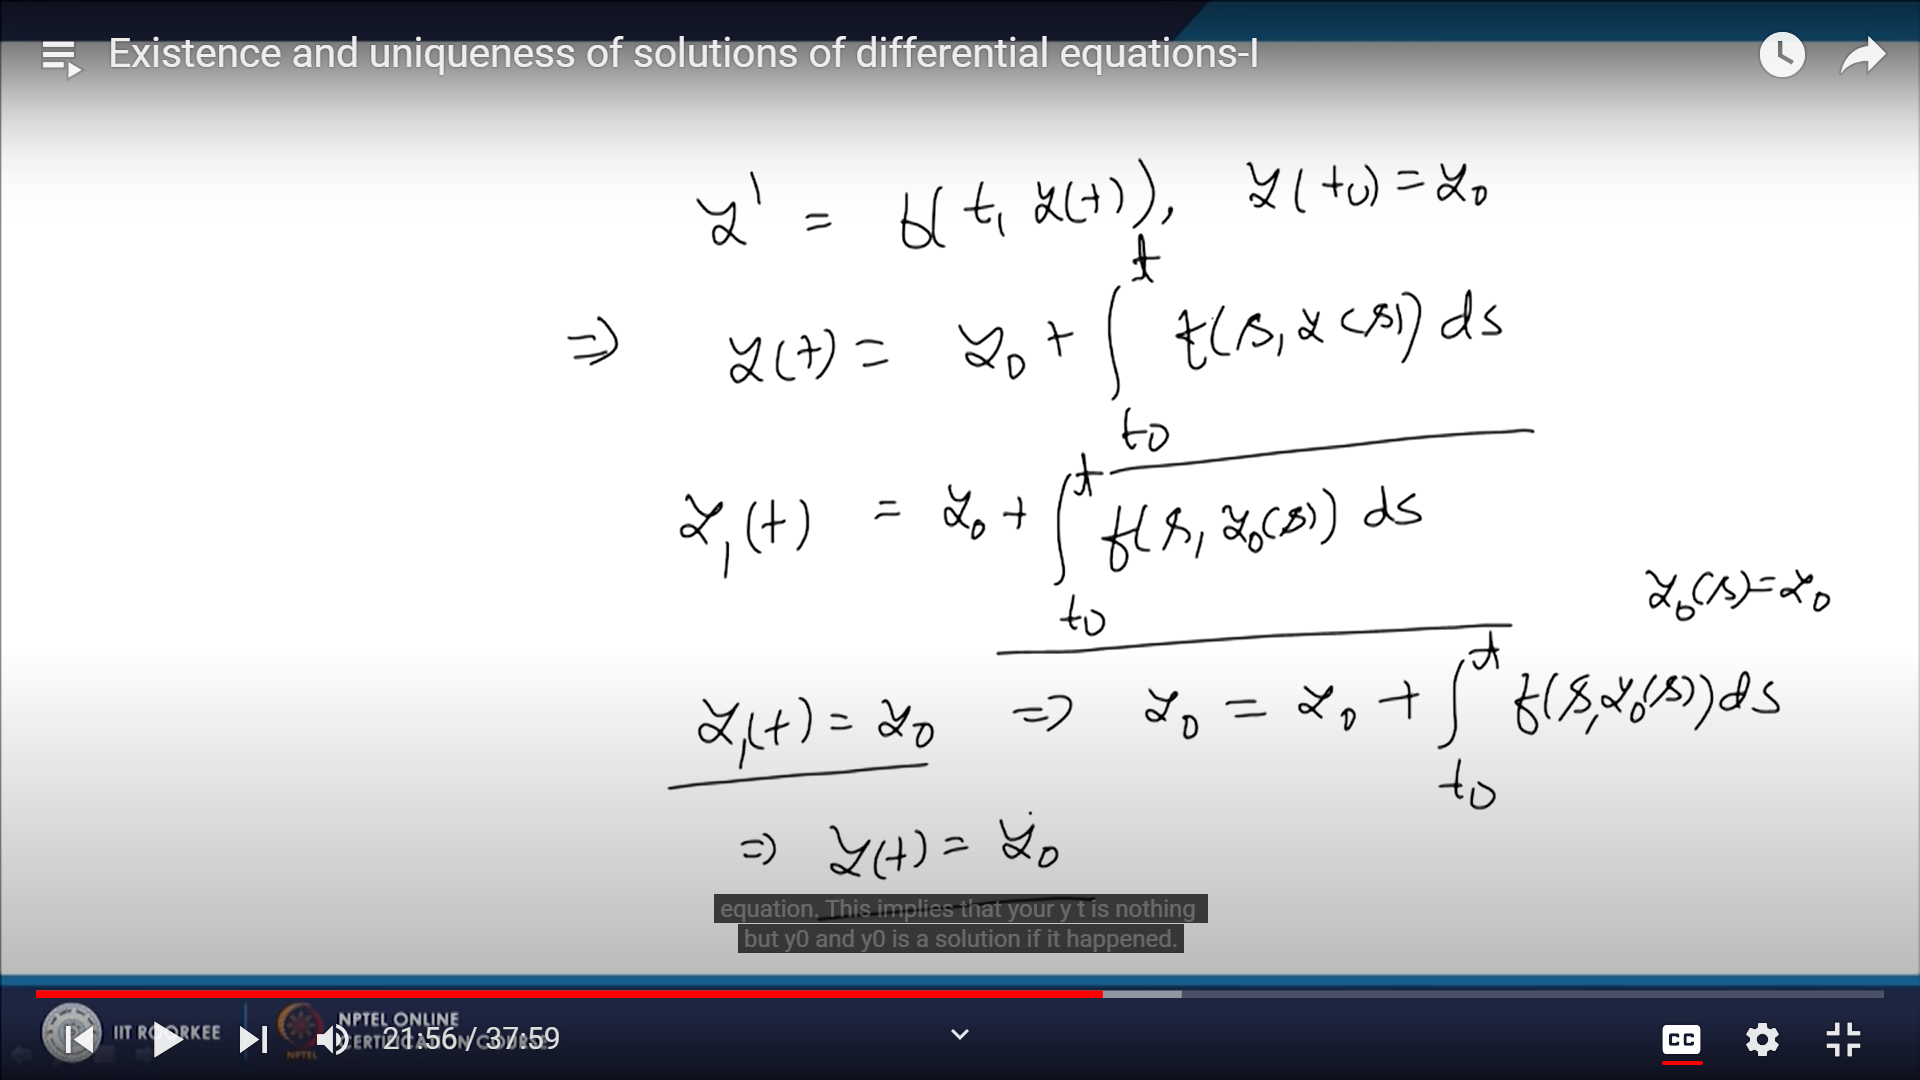 Existence and uniqueness of solutions of differential equations-I
y' = f(t, y(t)), y(t0) = y0
⇒ y(t) = y0 + ∫_{t0}^{t} f(s, y(s)) ds
y1(t) = y0 + ∫_{t0}^{t} f(s, y0(s)) ds
y0(s) = y0
y1(t) = y0 ⇒ y0 = y0 + ∫_{t0}^{t} f(s, y0(s)) ds
⇒ y(t) = y0
equation. This implies that your y t is nothing
but y0 and y0 is a solution if it happened.
IIT ROORKEE
NPTEL ONLINE
CERTIFICATION COURSE
NPTEL
21:56 / 37:59
CC